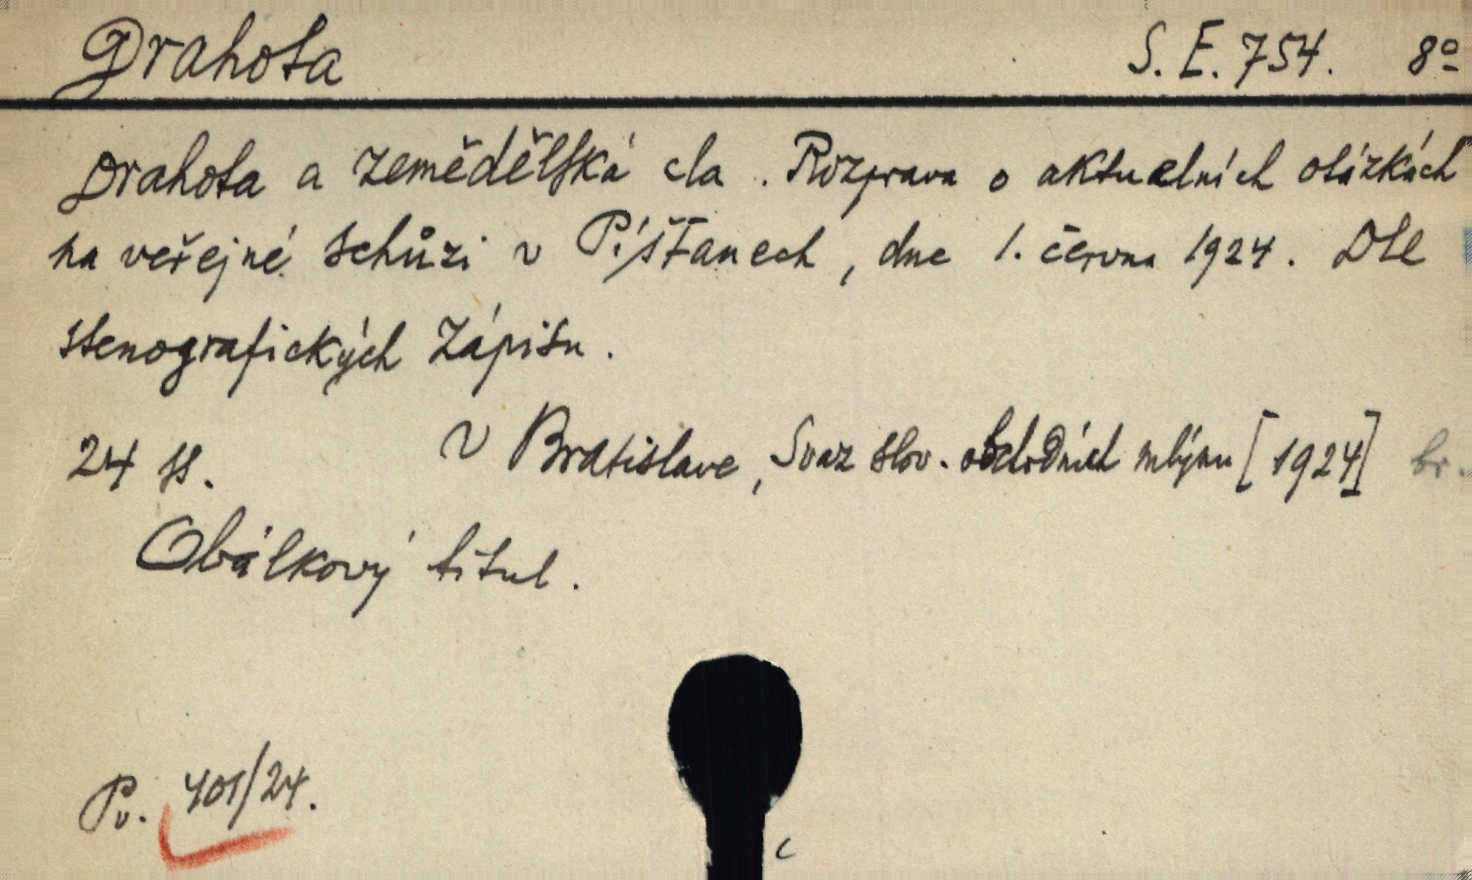 Drahota S. E. 754. 8º
Drahota a zemědělská cla. Rozprava o aktuelních otázkách
na veřejné schůzi v Píšťanech, dne 1. června 1924. Dle
stenografických zápisu.
24 ss. V Bratislave, Svaz slov. obchodních mlýnu [1924] br.
Obálkový titul.
Pv. 401/24.
c